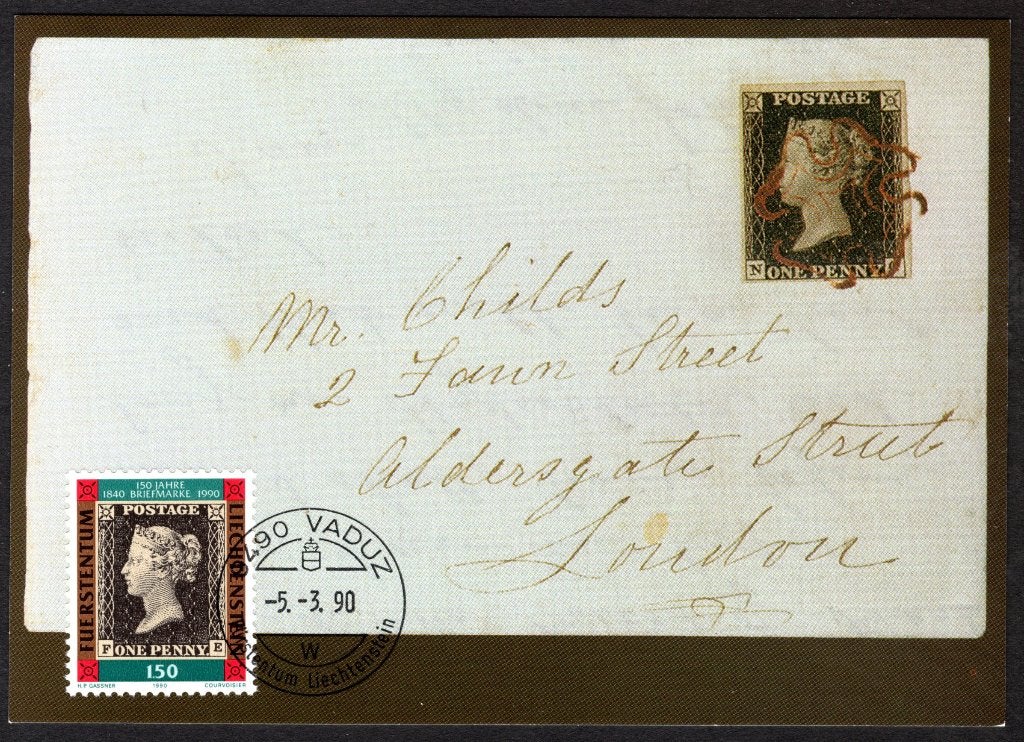 POSTAGE
N
ONE PENNY
Mr. Childs
2 Fann Street
Aldersgate Street
London
150 JAHRE
1840 BRIEFMARKE 1990
FUERSTENTUM
LIECHTENSTEIN
POSTAGE
F ONE PENNY. E
150
H.P. GASSNER 1990 COURVOISIER
9490 VADUZ
-5.-3. 90
W
Fürstentum Liechtenstein